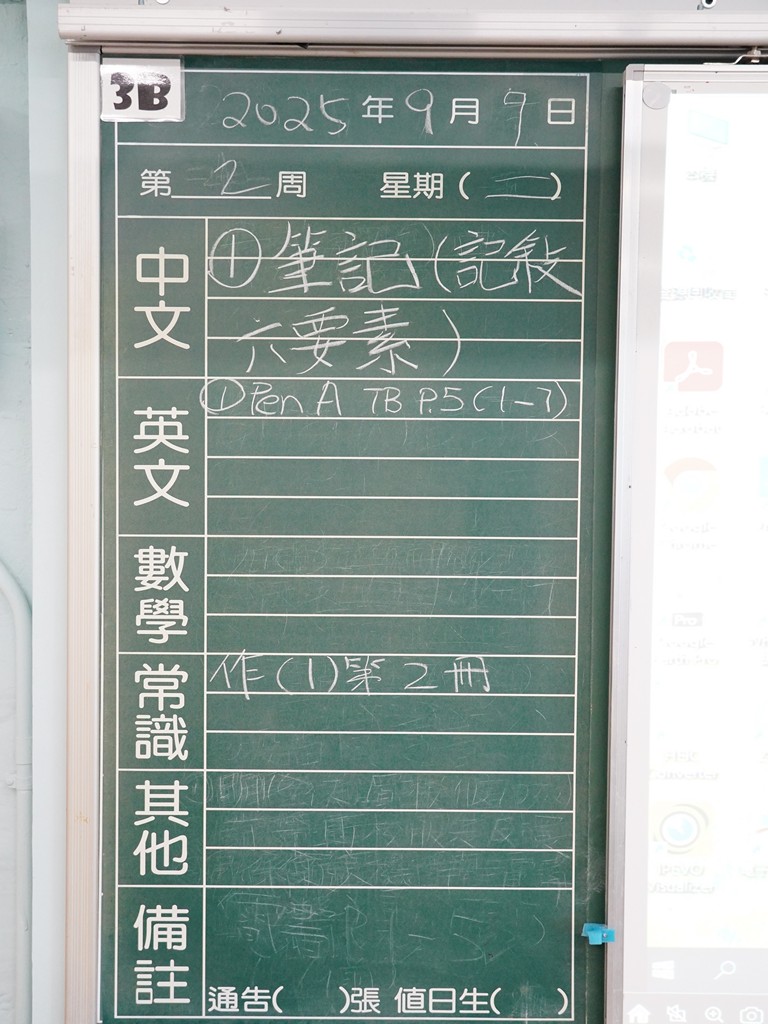 3B
2025年9月9日
第2周 星期(二)
中文
①筆記(記敘
六要素)
英文
①Pen A TB P.5(1-7)
數學
常識
作(1)第2冊
其他
備註
通告( )張 值日生( )